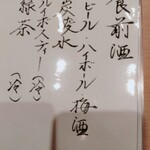 食前酒
ビール・ハイボール 梅酒
炭酸水
ルイボスティー(冷)
緑茶(冷)